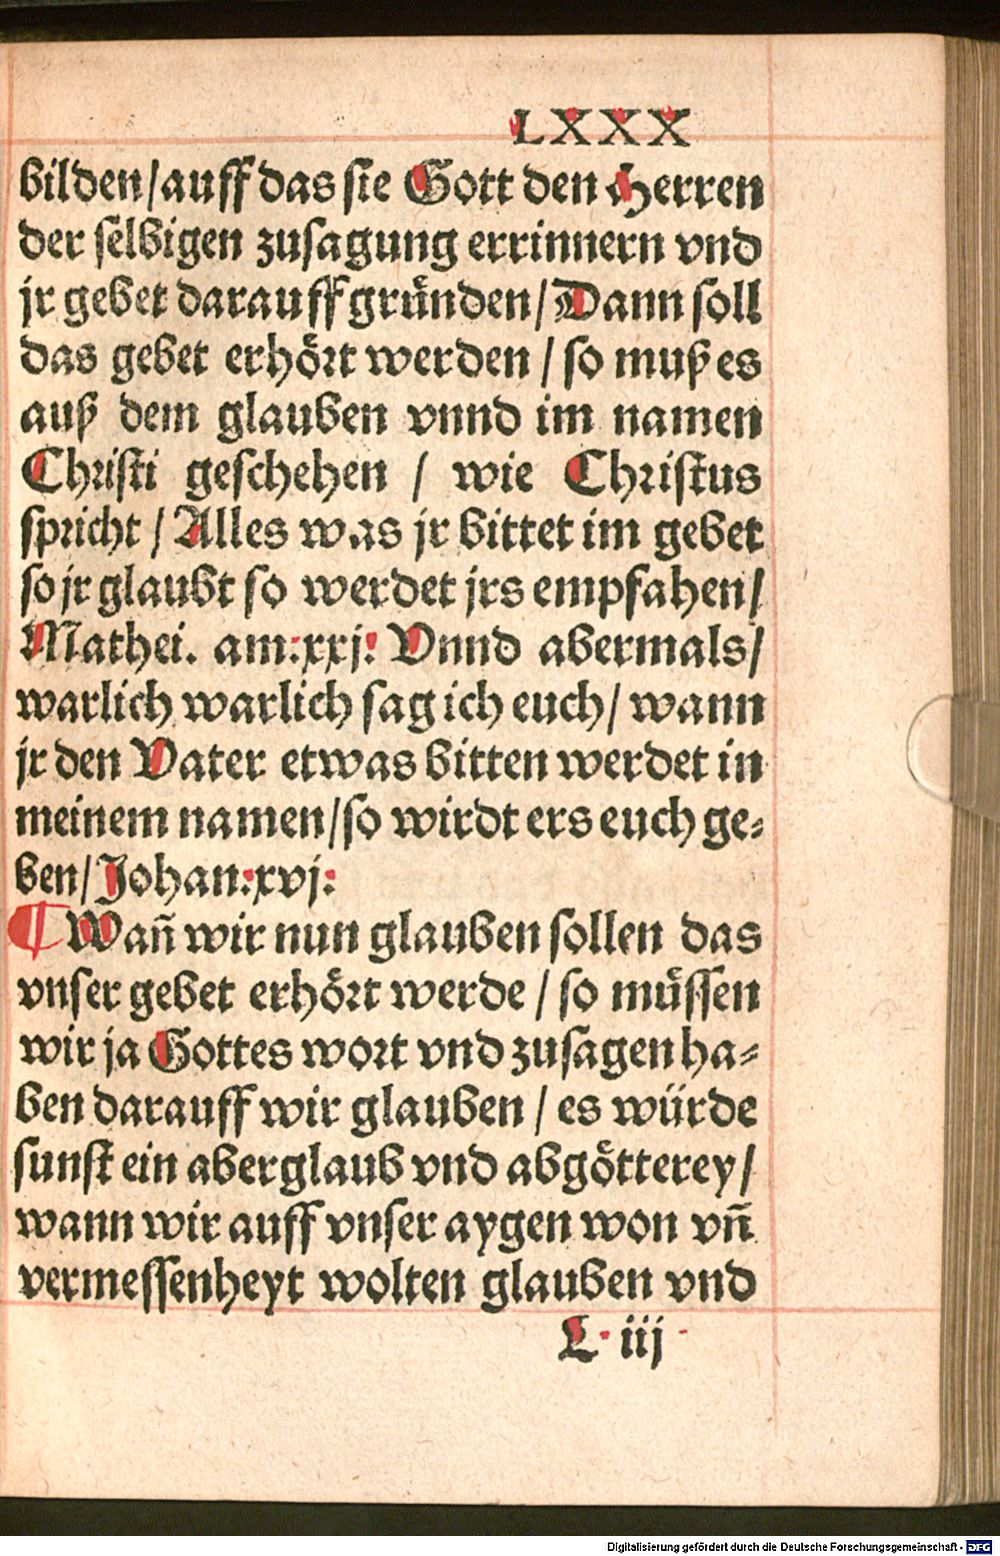 LXXX
bilden/auff das sie Gott den Herren
der selbigen zusagung errinnern vnd
jr gebet darauff gründen/Dann soll
das gebet erhört werden / so muß es
auß dem glauben vnnd im namen
Christi geschehen / wie Christus
spricht / Alles was jr bittet im gebet
so jr glaubt so werdet jrs empfahen/
Mathei. am:xxj: Vnnd abermals/
warlich warlich sag ich euch/ wann
jr den Vater etwas bitten werdet in
meinem namen/so wirdt ers euch ge⸗
ben/ Johan:xvj:
¶ Wañ wir nun glauben sollen das
vnser gebet erhört werde / so müssen
wir ja Gottes wort vnd zusagen ha⸗
ben darauff wir glauben / es würde
sunst ein aberglaub vnd abgötterey/
wann wir auff vnser aygen won vñ
vermessenheyt wolten glauben vnd
L· iij
Digitalisierung gefördert durch die Deutsche Forschungsgemeinschaft - DFG